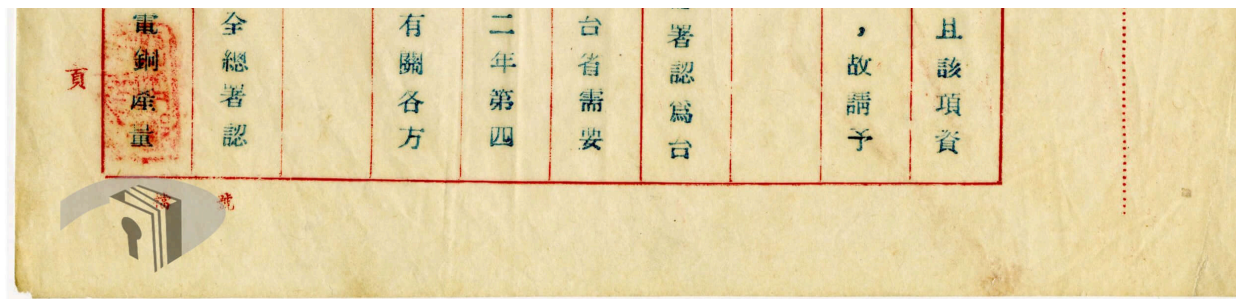 且該項資
，故請予
署認為台
台省需要
二年第四
有關各方
全總署認
電銅產量
頁
號